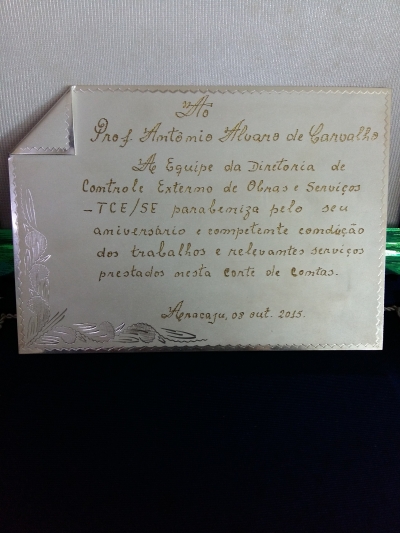 Ao
Prof. Antônio Alvaro de Carvalho
A Equipe da Diretoria de
Controle Externo de Obras e Serviços
-TCE/SE parabeniza pelo seu
aniversário e competente condução
dos trabalhos e relevantes serviços
prestados nesta corte de contas.
Aracaju, 09 out. 2015.